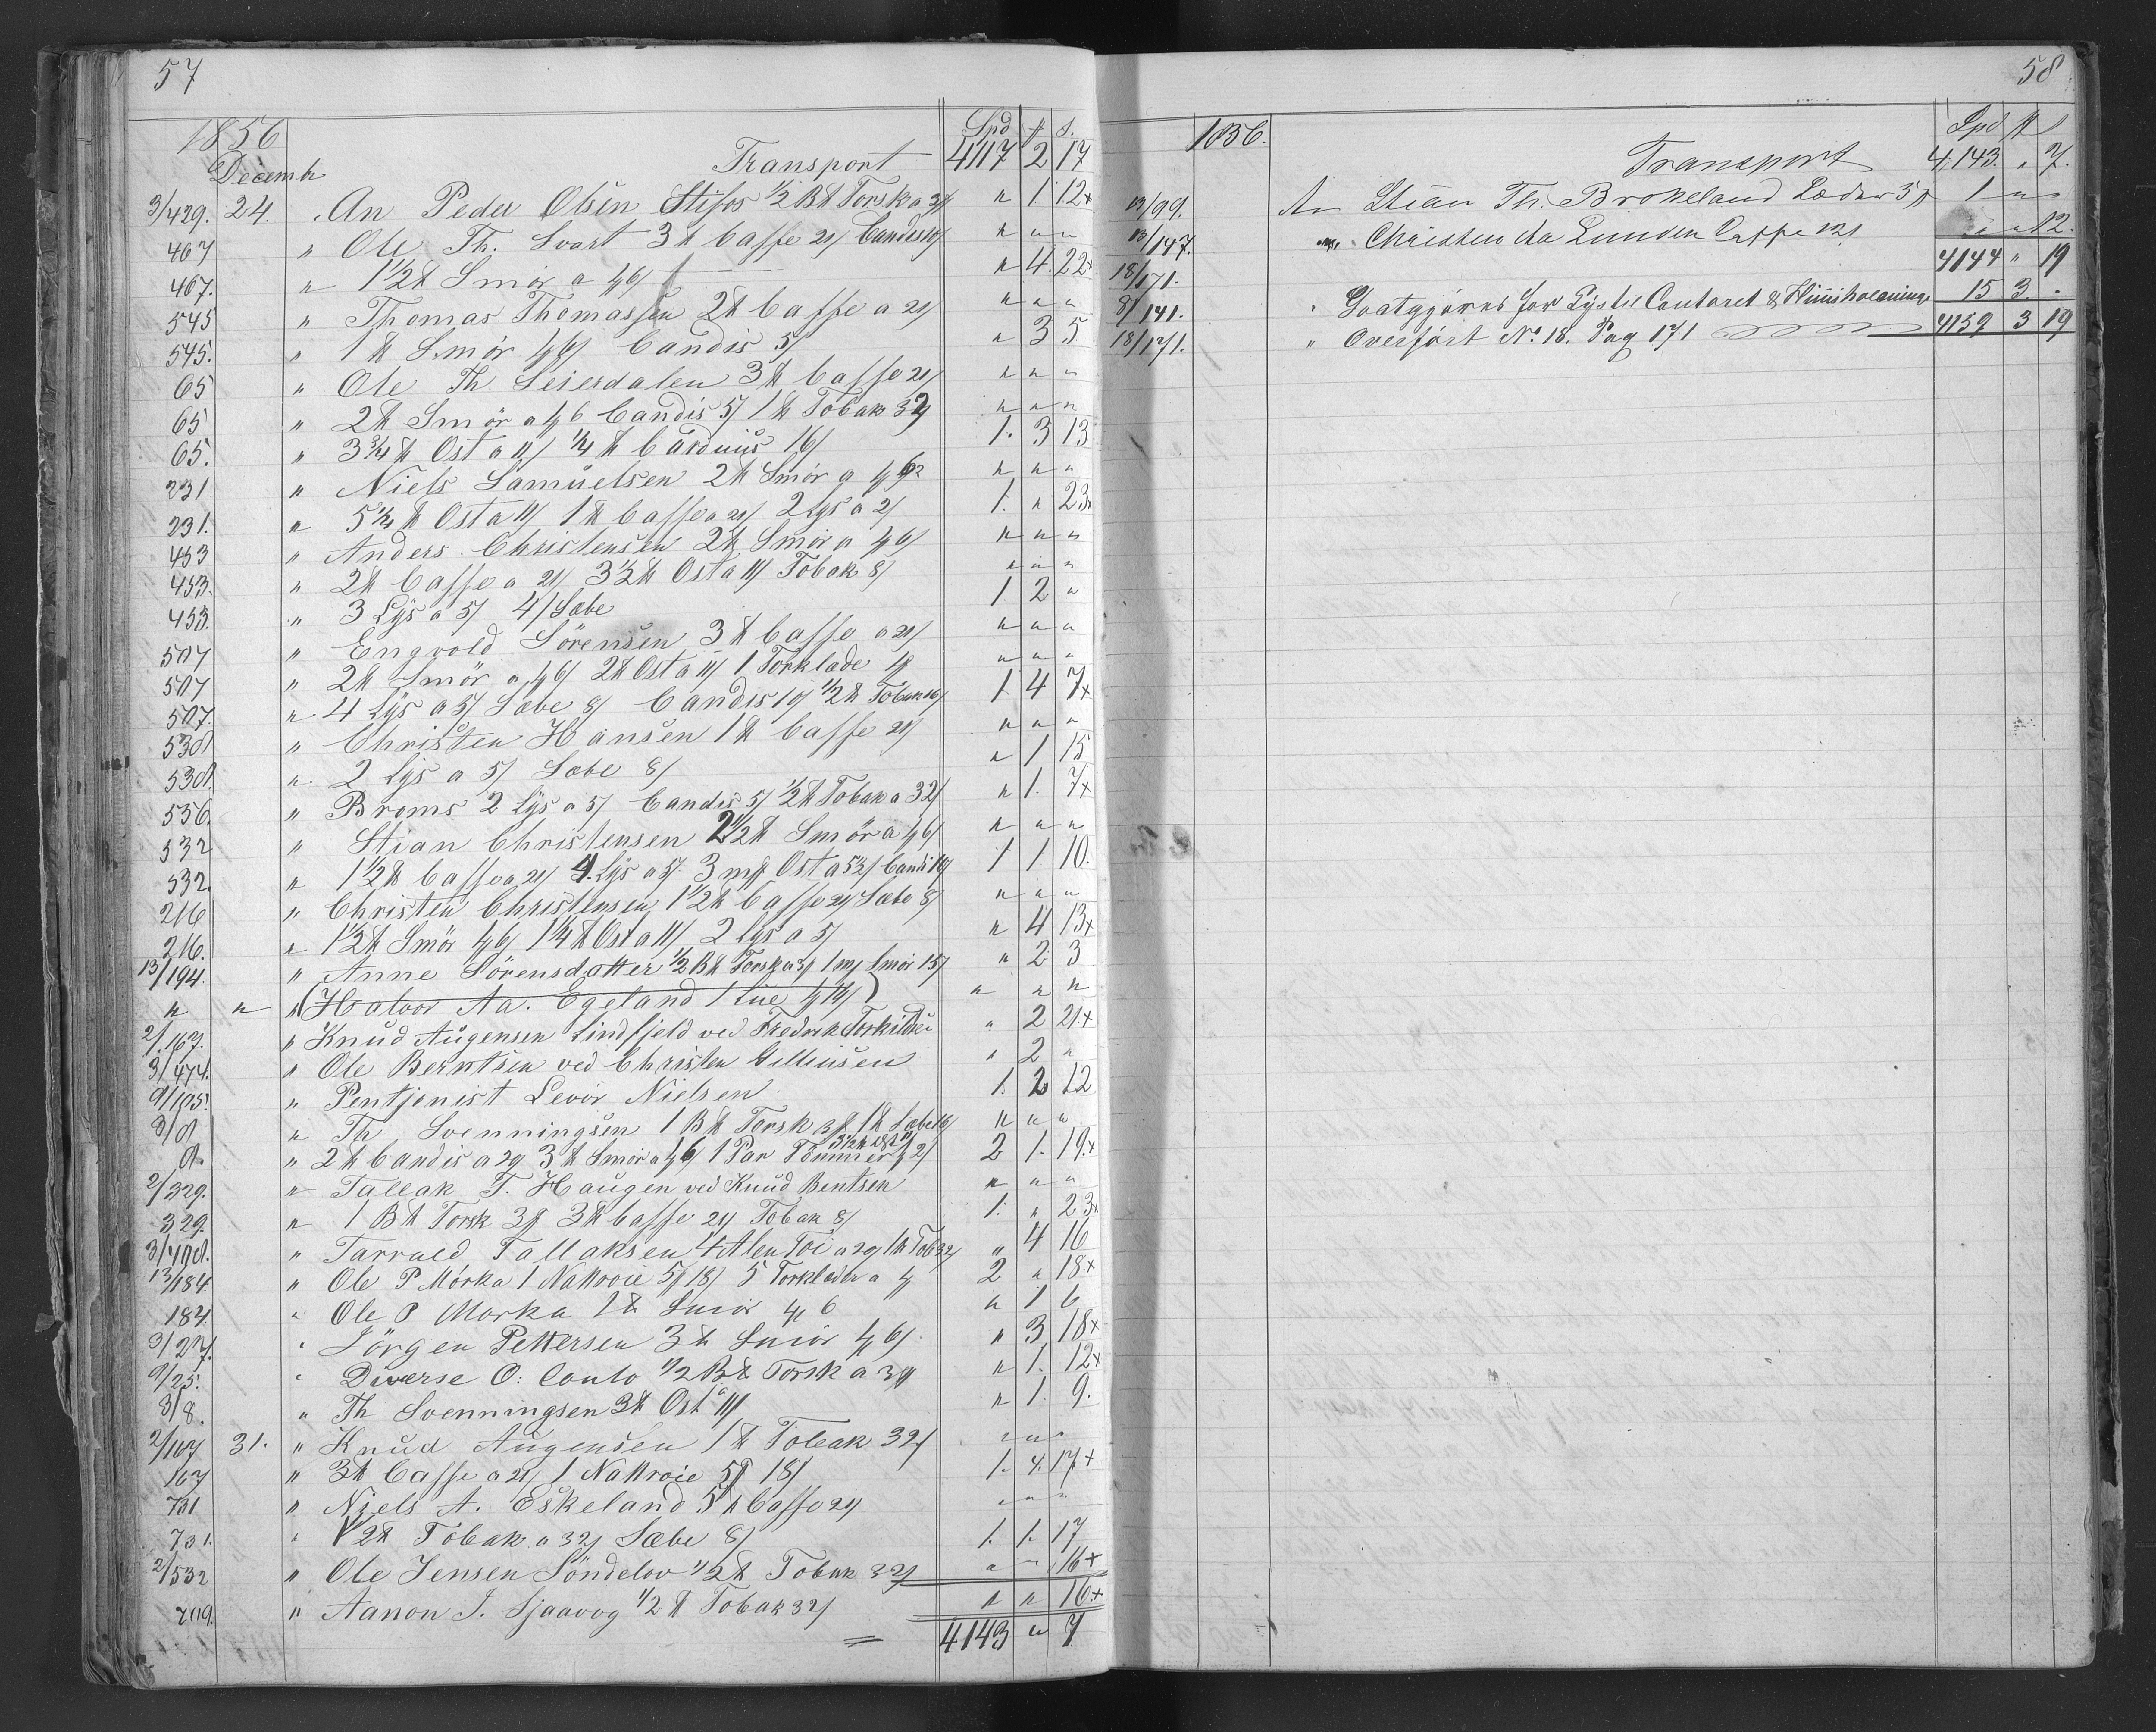 57
1856
Decembr
Spd ƒ s.
Transport 4117 2 17
3/429. 24. An Peder Olsen Stifos 1/2 B℔ Torsk a 3ƒ " 1 12x
467 " Ole Th. Svart 3 ℔ Caffe 21/ Candis " " "
467. " 1 1/2 ℔ Smör a 1ƒ6/ " 4 22x
545 " Thomas Thomassen 2 ℔ Caffe a 21/ " " "
545. " 1 ℔ Smör 1ƒ6/ Candis 5/ " 3 5
65 " Ole Th Leiersdalen 3 ℔ Caffe 21/ " " "
65 " 2 ℔ Smör a 1ƒ6 Candis 5/ 1 ℔ Tobak 32/ " " "
65. " 3 3/4 ℔ Ost a 11/ 1/4 ℔ 16/ 1. 3 13
231 " Niels Samuelsen 2 ℔ Smör a 1ƒ6 " " "
231. " 5 1/4 ℔ Ost a 11/ 1 ℔ Caffe a 21/ 2 Lys a 2/ 1. " 23x
453 " Anders Christensen 2 ℔ Smör a 1ƒ6/ " " "
453. " 2 ℔ Caffe a 21/ 3 1/2 ℔ Ost a 11/ Tobak 8/ " " "
453. " 3 Lys a 5/ 4/ Sæbe 1 2 "
507 " Engvold Sörensen 3 ℔ Caffe a 21/ " " "
507 " 2 ℔ Smör a 1ƒ6/ 2 ℔ Ost a 11/ 1 Torklæde 1ƒ " " "
507. " 4 Lys a 5/ Sæbe 8/ Candis 10/ 1/2 ℔ Tobak 16/ 1 4 7x
538 " Christen Hansen 1 ℔ Caffe 21/ " " "
538. " 2 Lys a 5/ Sæbe 8/ " 1 15
556. " Broms 2 Lys a 5/ Candis 5/ 1/2 ℔ Tobak a 32/ " 1. 7x
532 " Stian Christensen 2 1/2 ℔ Smör a 1ƒ6/ " " "
532. " 1 1/2 ℔ Caffe a 21/ 4 Lys a 5/. 3 m℔ Ost a 5 1/2/ Candi 10/ 1 1 10.
216 " Christen Christensen 1 1/2 ℔ Caffe 21/ Sæbe 8/ " " "
216. " 1 1/2 ℔ Smör 1ƒ6/ 1 1/4 ℔ Ost a 11/ 2 Lys a 5/ " 4 13x
13/194. " Anne Sörensdatter 1/2 B℔ Torsk a 3ƒ 1 m℔ Smör 15/ " 2 3
" " " (Halvor Aa. Egeland 1 Lue 1ƒ) " " "
2/167. " Knud Augensen Lindtjeld ved Fredrik Torkildsen " 2 21x
3/474. " Ole Berntsen ved Christen Gilliusen " 2 "
9/105. " Pentjonist Levor Nielsen 1. 2 12
8/8 " Th Svenningsen 1 B℔ Torsk 3ƒ 1 ℔ Sæbe 16/ " " "
8. " 2 ℔ Candis a 29 3 ℔ Smör a 1ƒ6/ 1 Par 2/ 2 1. 19x
2/329. " Tallak T. Haugen ved Knud Bentsen " " "
329. " 1 B℔ Torsk 3ƒ 3 ℔ Caffe 21/ Tobak 8/ 1. " 23x
3/408. " Tarrald Tallaksen 4 Alen Töi a 29/ 1 ℔ Tob 32/ " 4 16
13/184 " Ole P Mörka 1 Nattroie 5ƒ 18/ 5 Torklæder a 1ƒ 2 " 18x
184. " Ole P Morka 1 ℔ Smör 1ƒ 6 " 1 6
3/27. " Jörgen Pettersen 3 ℔ Smör 1ƒ6/ " 3 18x
9/25. " Diverse O: Conto 1/2 B℔ Torsk a 3ƒ " 1. 12x
8/8. " Th Svenningsen 3 ℔ Ost a 11/ " 1. 9.
2/167 31. " Knud Augensen 1 ℔ Tobak 32/ " " "
167 " 3 ℔ Caffe a 21/ 1 Nattroie 5ƒ 18/ 1. 4. 17x
731 " Niels A. Eskeland 5 ℔ Caffe 21/ " " "
731. " 1/2 ℔ Tobak a 32/ Sæbe 8/ 1. 1. 17
2/532 " Ole Jensen Söndelov 1/2 ℔ Tobak 32/ " " 16x
709. " Aanon J. Sjaavog 1/2 ℔ Tobak 32/ " " 16x
4143 " 7
58
1856.
Spd ƒ s
Transport 4,143. " 7.
13/99. An Stian Th. Brokeland Læder 5ƒ 1 " "
13/147. " Christen Aa Lunden Caffe 12/ " " 12.
18/171. 4144 " 19
8/141. " Godtgjörns for Lyster Contoret & 15 3. "
18/171. " Overfört No. 18. Pag 171 4159 3 19